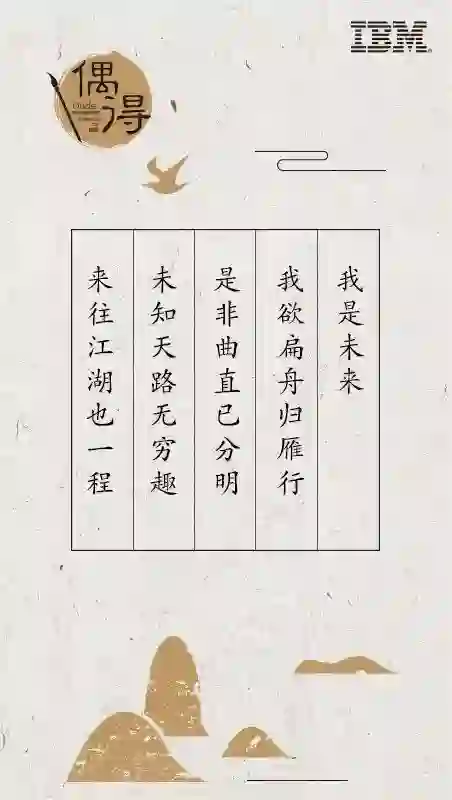 IBM
偶得
我是未来
我欲扁舟归雁行
是非曲直已分明
未知天路无穷趣
来往江湖也一程